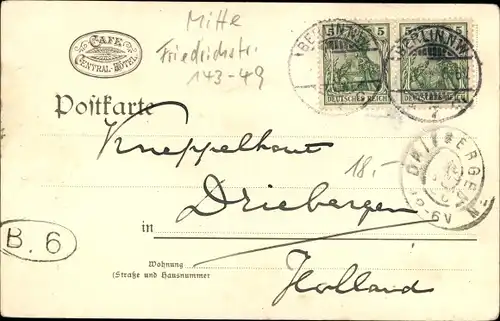 Mitte
Friedrichstr.
143-49
CAFE
CENTRAL-HÔTEL.
5 5
DEUTSCHES REICH
BERLIN N.W.
BERLIN N.W.
7
Postkarte
Kneppelhout
18.-
DRIEBERGEN
Driebergen
B. 6
in
Wohnung
(Straße und Hausnummer
Holland